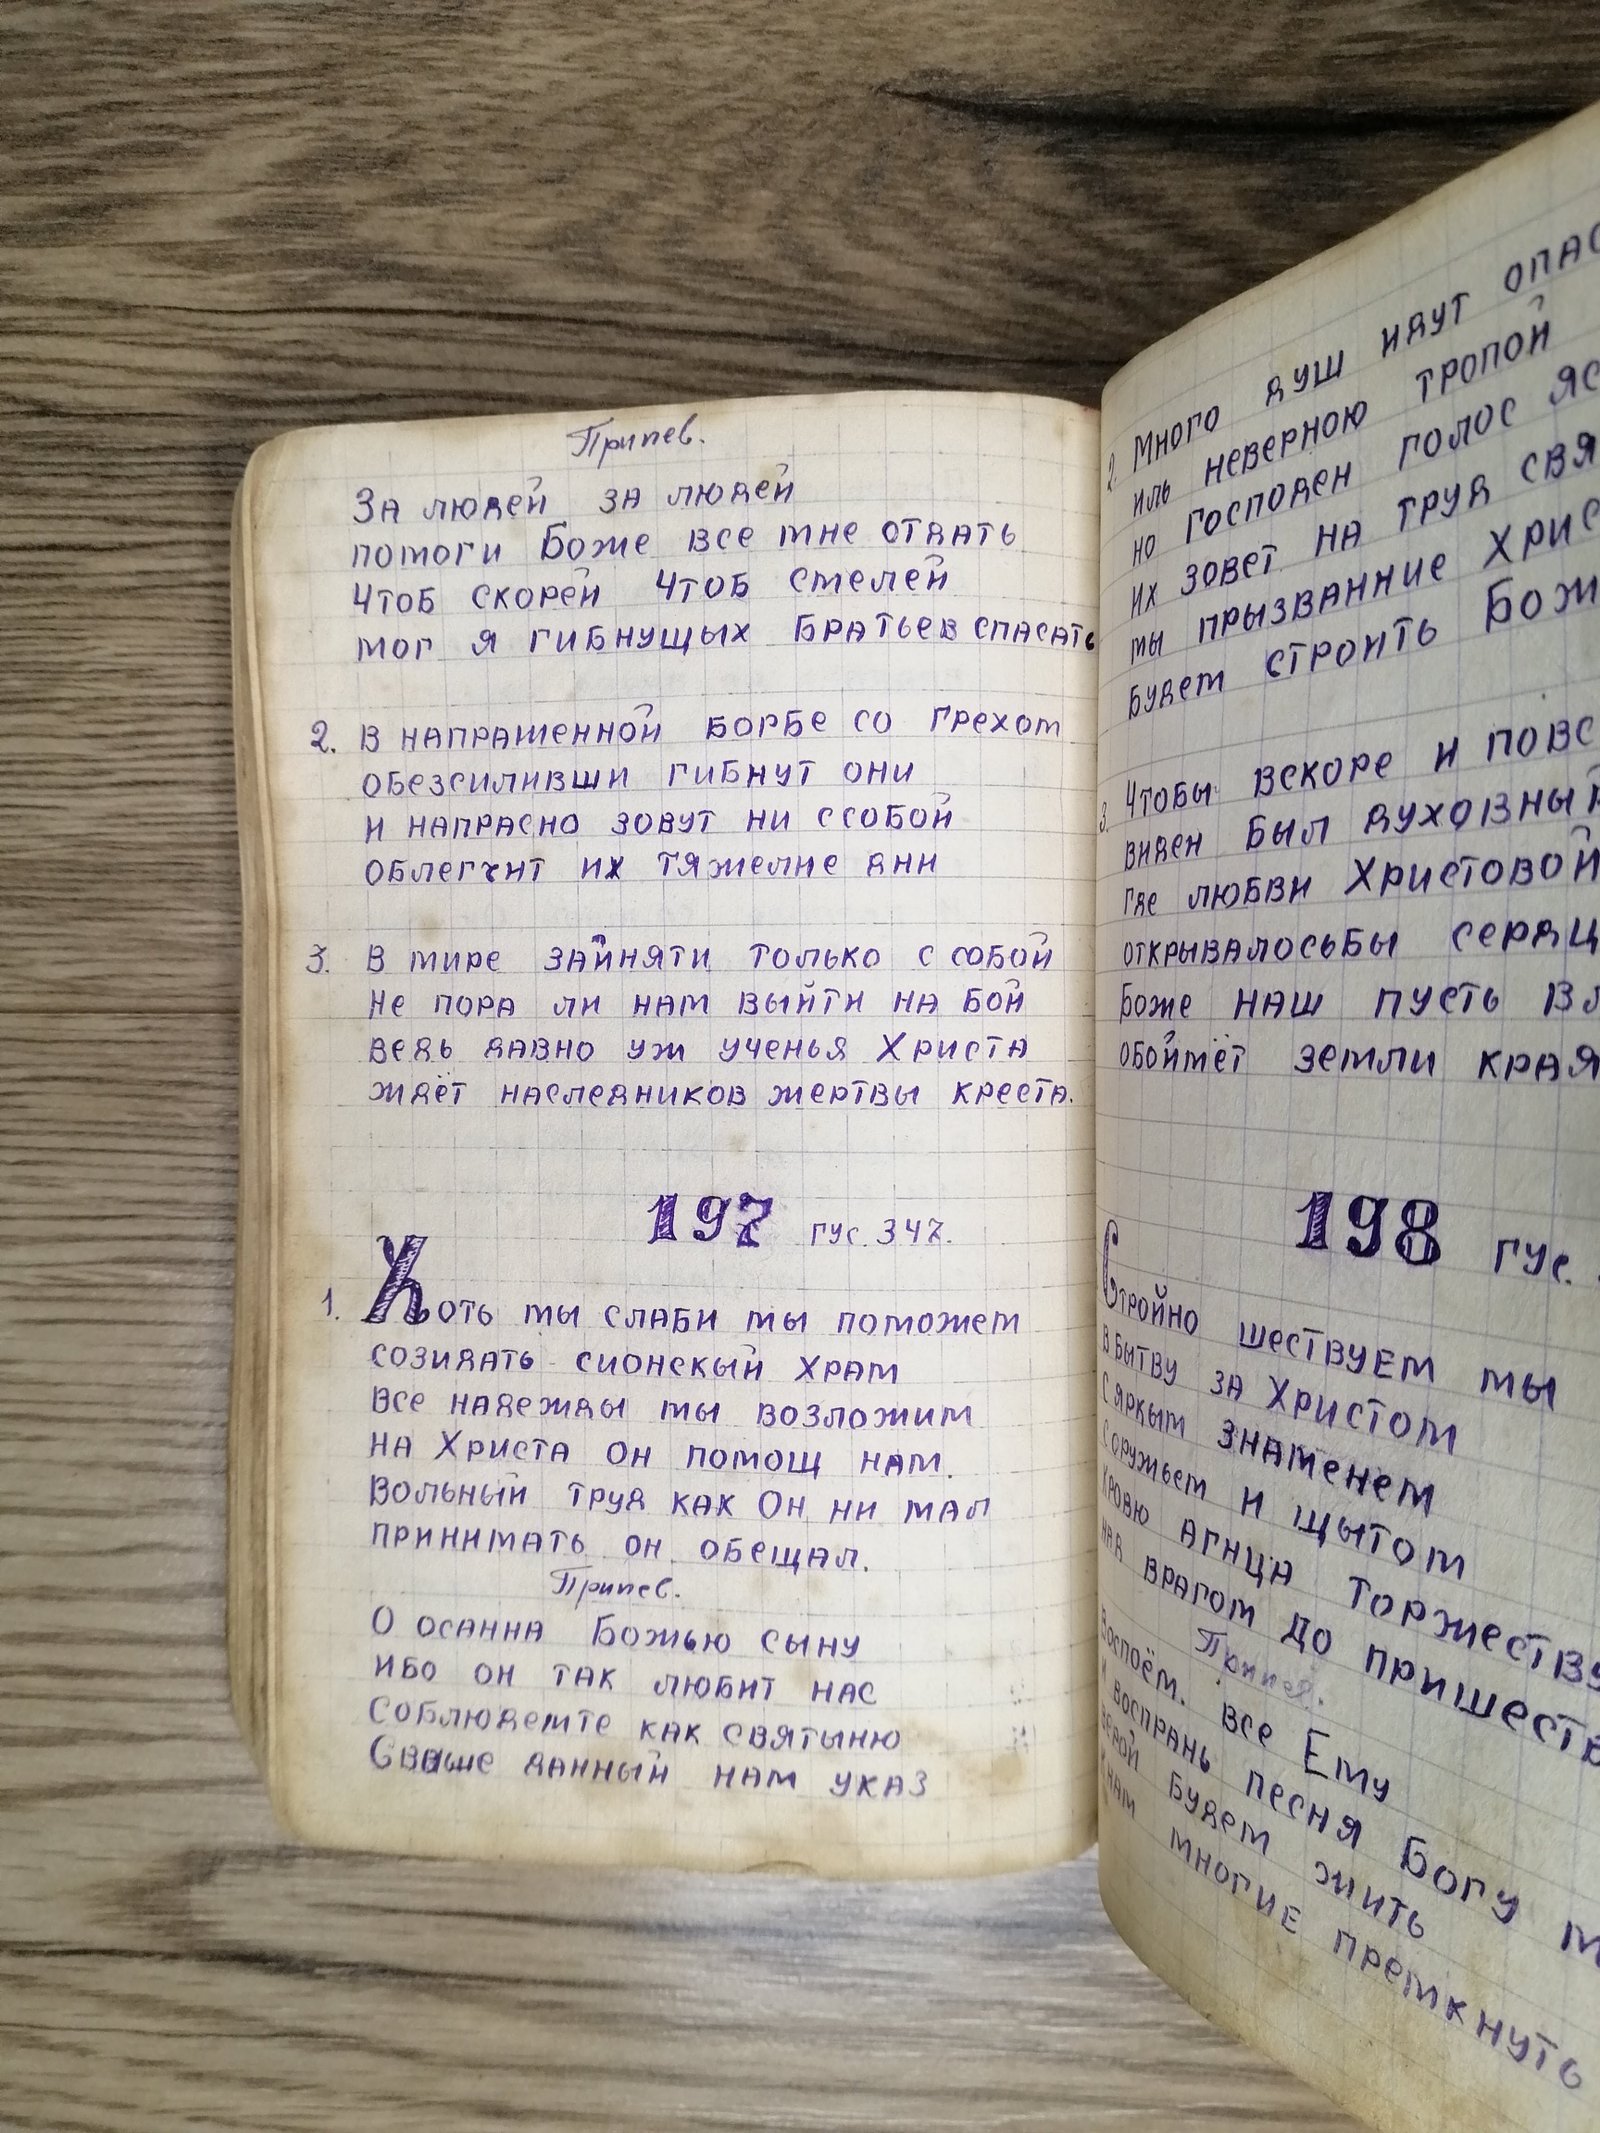 Припев.
За людей за людей
помоги Боже все мне отдать
Чтоб скорей чтоб смелей
мог я гибнущых братьев спасать
2. В напраженной борбе со грехом
обезсиливши гибнут они
и напрасно зовут ни ссобой
облегчит их тяжелие дни
3. В мире зайняти только с собой
Не пора ли нам выйти на бой
ведь давно уж ученья Христа
ждёт наследников жертвы креста.
197 гус. 347.
1. Хоть мы слаби мы поможем
созидать сионскый храм
все надежды мы возложим
на Христа он помощ нам.
Вольный труд как Он ни мал
принимать он обещал.
Припев.
О осанна Божью сыну
ибо он так любит нас
Соблюдемте как святыню
Свыше данный нам указ
2. Много душ идут
иль неверною тропой
но Господен голос
Их зовет на труд
мы прызванние
будем строить
3. Чтобы вскоре и
виден был
где любви Христовой
открывалосьбы
Боже наш пусть
обоймёт земли края
198 гус.
Стройно шествуем мы
в бытву за Христом
С яркым знаменем
Соружьем и щытом
Кровю агнца
над врагом до
Припев.
Воспоём все Ему
И воспрань песня Богу
верой будем жить
К нам многие премкнуть